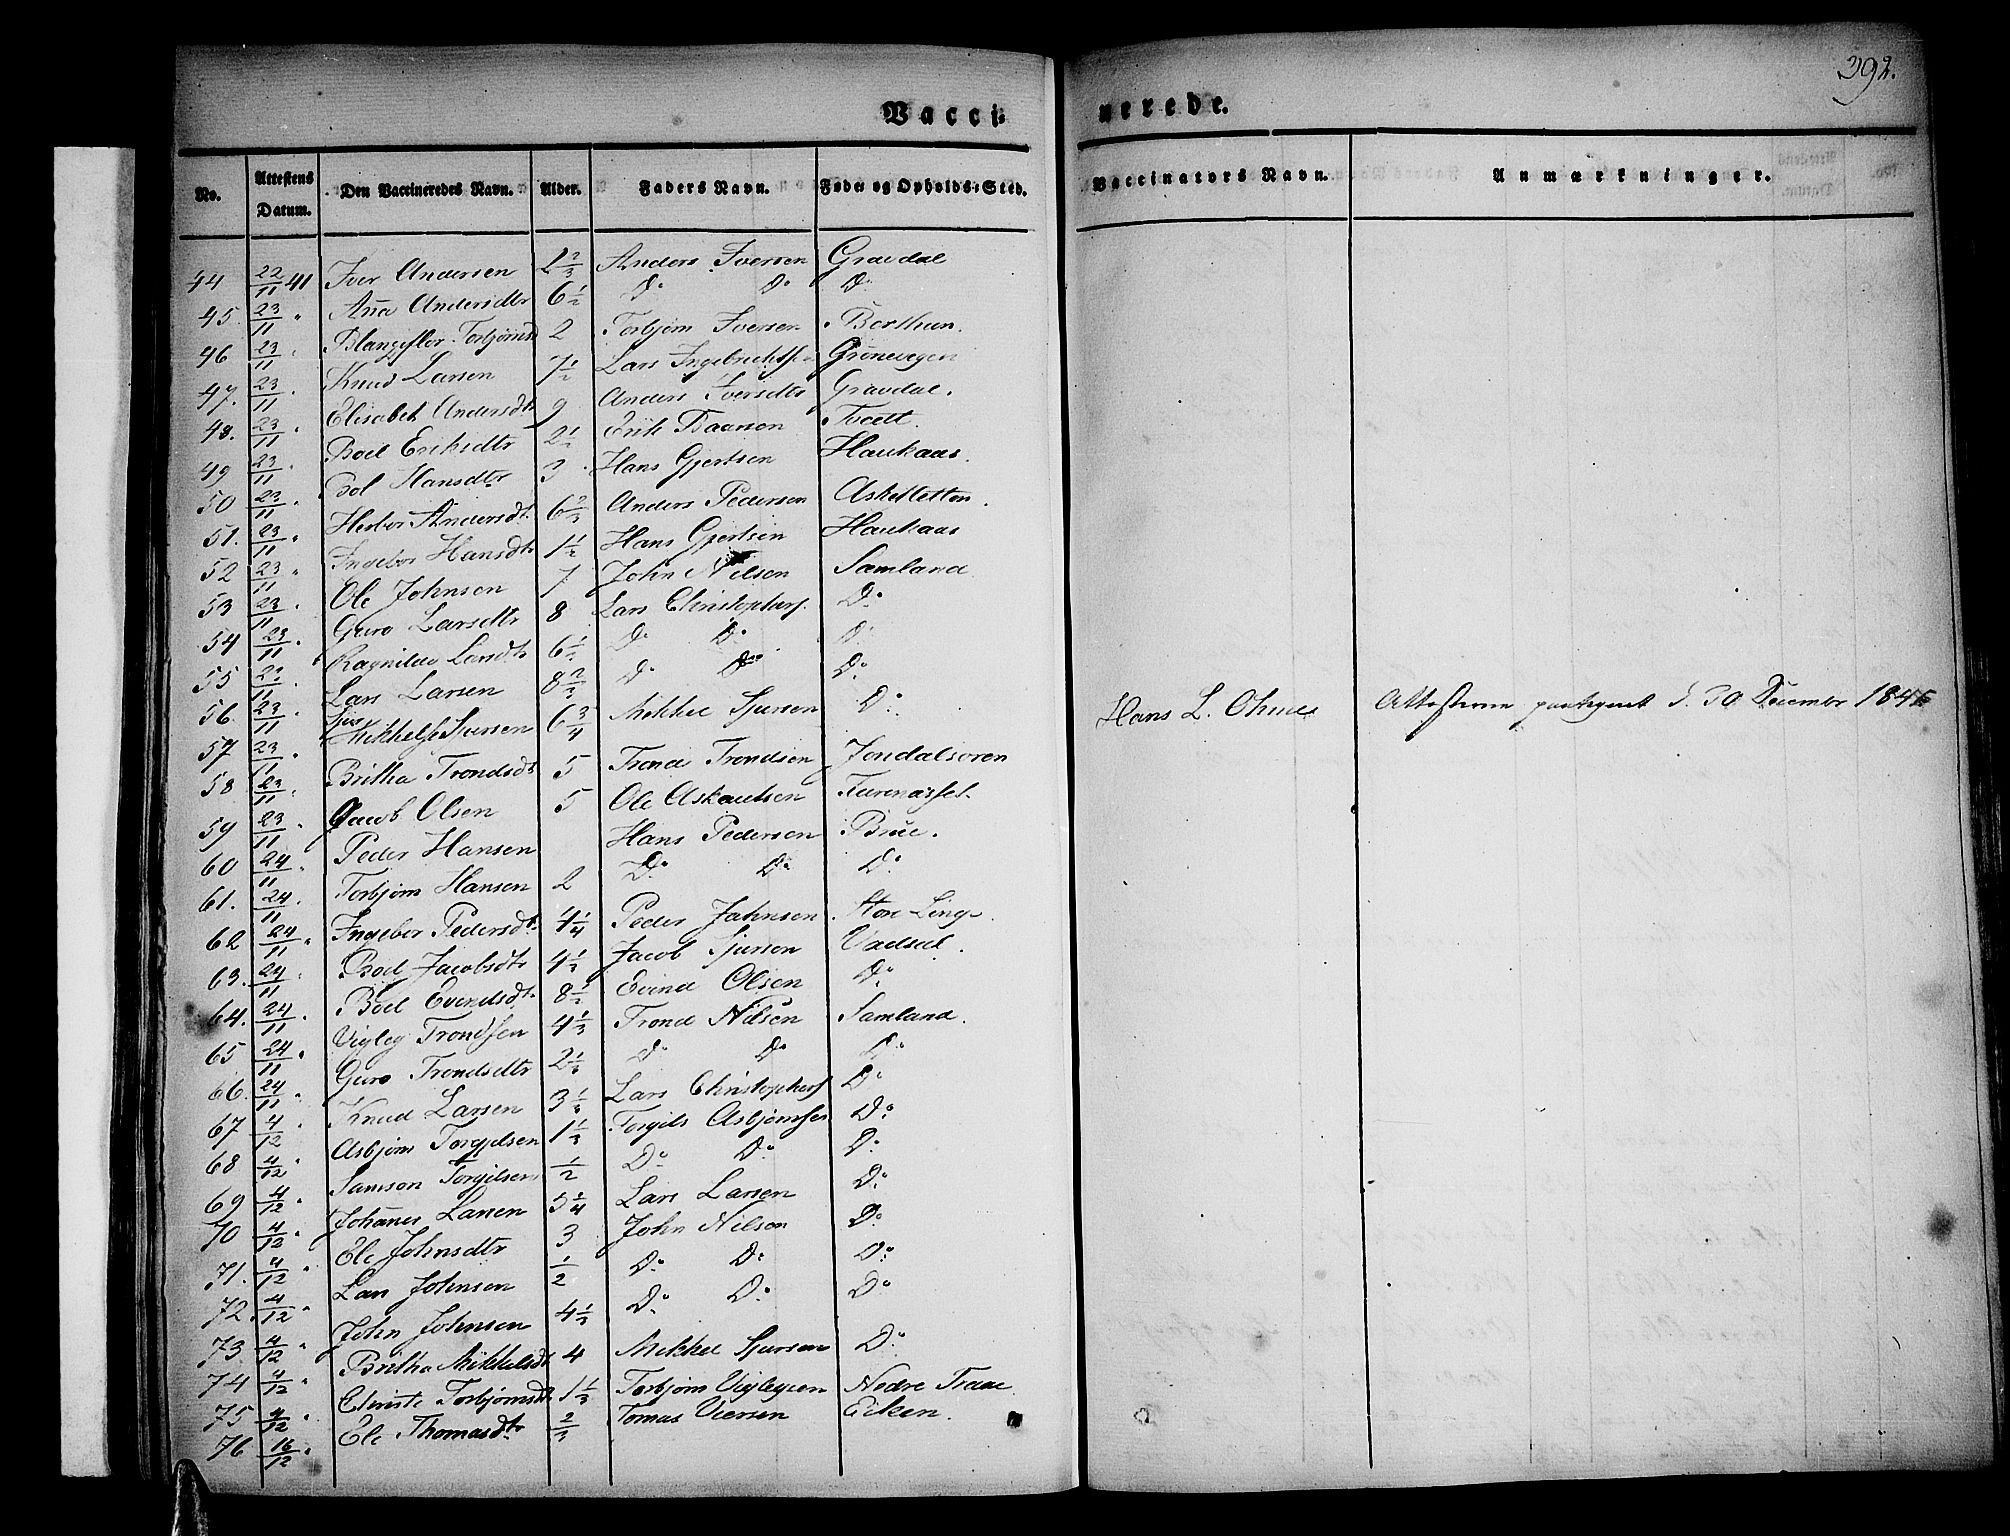 392.
Vacci-
nerede.
No. Attestens Datum. Den Vaccineredes Navn. Alder. Faders Navn. Føde- og Opholds-Sted.
Vaccinators Navn. Anmærkninger.
44 22/11 41 Iver Andersen 2 2/3 Anders Iversen Gravdal
45. 23/11 " Aña Andersdtr 6 1/2 Do Do Do
46 23/11 " Torbjørnsd 2 Torbjørn Iversen Berthun.
47. 23/11 " Knud Larsen 7 1/2 Lars Grønevegen
48. 23/11 " Elisabet Andersdtr 9 Anders Iversdtr Gravdal.
49 23/11 " Boel Eriksdtr 2 1/2 Erik Baarsen Tvedt.
50 23/11 " Bol Hansdtr 3 Hans Gjertsen Haukaas.
51. 23/11 " Andersdt. 6 2/3 Anders Pedersen
52 23/11 " Ingebor Hansdtr 1 1/2 Hans Gjertsen Haukaas
53 23/11 " Ole Johnsen 7 John Nilsen Samland
54 23/11 " Guro Larsdtr 8 Lars Christophers. Do
55 23/11 " Ragnilde Larsdtr 6 1/2 Do Do Do
56. 23/11 " Lars Larsen 8 2/3 Do Do Do
57 23/11 " Sjursen 6 3/4 Mikkel Sjursen Do
58 23/11 " Britha Trondsdt 5 Trond Trondsen Jondalsøren
59 23/11 " Jacob Olsen 5 Ole Askautsen
60 24/11 " Peder Hansen Hans Pedersen Brue.
61. 24/11 Torbjørn Hansen 2 Do Do Do
62 24/11 " Ingebor Pedersdt. 4 1/4 Peder Johnsen Store
63. 24/11 " Boel Jacobsdtr 4 1/3 Jacob Sjursen
64. 24/11 " Boel 8 1/2 Evind Olsen Do
65 24/11 " Vigleg Trondsen 4 1/3 Trond Nilsen Samland.
66. 24/11 " Guro Trondsdtr 2 1/3 Do Do Do
67 4/12 " Knud Larsen 3 Lars Christophers Do
68 4/12 " Asbjørn Torgilsen 1 1/3 Torgils Asbjørnsen Do
69 4/12 " Samson Torgilsen 1/2 Do Do Do
70 4/12 " Johanes Larsen 5 Lars Larsen Do
71. 4/12 " Ele Johnsdtr 3 John Nilsen Do
72. 4/12 " Lars Johnsen 1/2 Do Do Do
73. 4/12 " John Johnsen 4 1/3 Do Do Do
74 4/12 " Britha Mikkelsdt 4 Mikkel Sjursen Do
75 4/12 " Christe Torbjørnsdt 1 1/3 Torbjørn Viglegsen Nedre
76 16/12 " Ele Thomasdtr 2/3 Tomas Eiken.
Hans L. Ohnes
d. 30 December